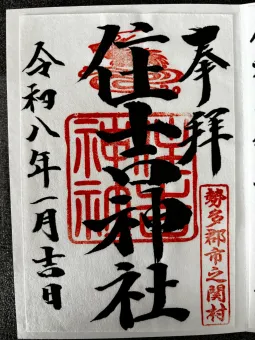 奉拝
住吉神社
勢多郡市之関村
令和八年一月吉日